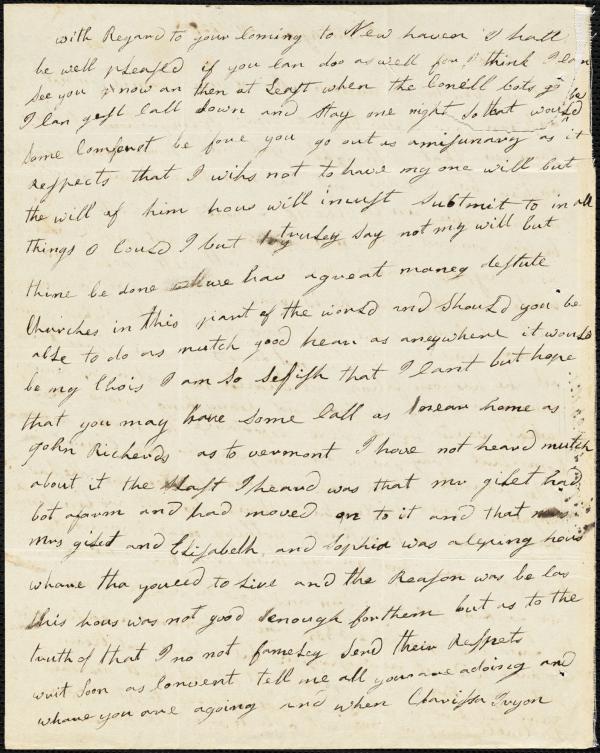 with Regard to your Coming to New haven I hall
be well pleased if you Can doo as well for I think I Can
See you now an then at Least when the Conell bots go by
I Can gest Call down and Stay one night So that would
Some Comfeurt be fore you go out as amisunary as it
respects that I wihs not to have my one will but
the will of him hous will imust Submit to in all
things o Could I but truley Say not my will but
thine be done we hav a great maney destute
Churches in this part of the world and Should you be
able to do as mutch good hear as aneywhere it would
be my Chois I am So Selfish that I Cant but hope
that you may have Some Call as near home as
John Richerds as to vermont I have not heard mutch
about it the Last I heard was that mr gilet had
bot a farm and had moved on to it and that
Mrs gilet and Elisabeth, and Sophia was hous
whare tha youeed to Live and the Reason was be Cas
this hous was not good enough for them but as to the
truth of that I no not famely Send their Respets
writ Soon as Convent tell me all you are adoing and
whare you are agoing and when Clarissa